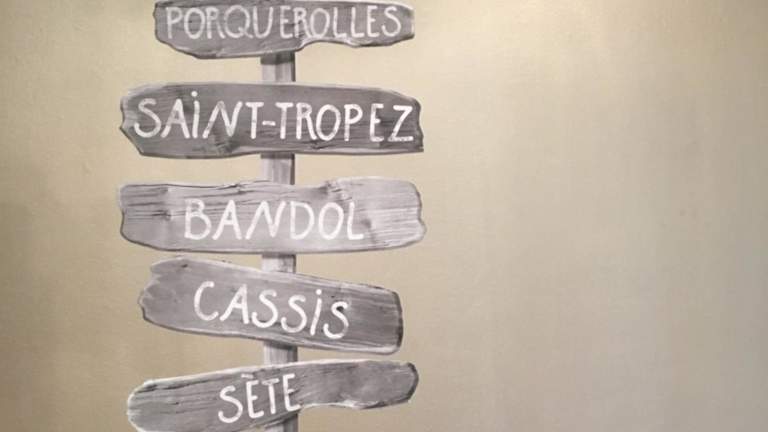 PORQUEROLLES
SAiNT-TROPEZ
BANDOL
CASSiS
SÈTE